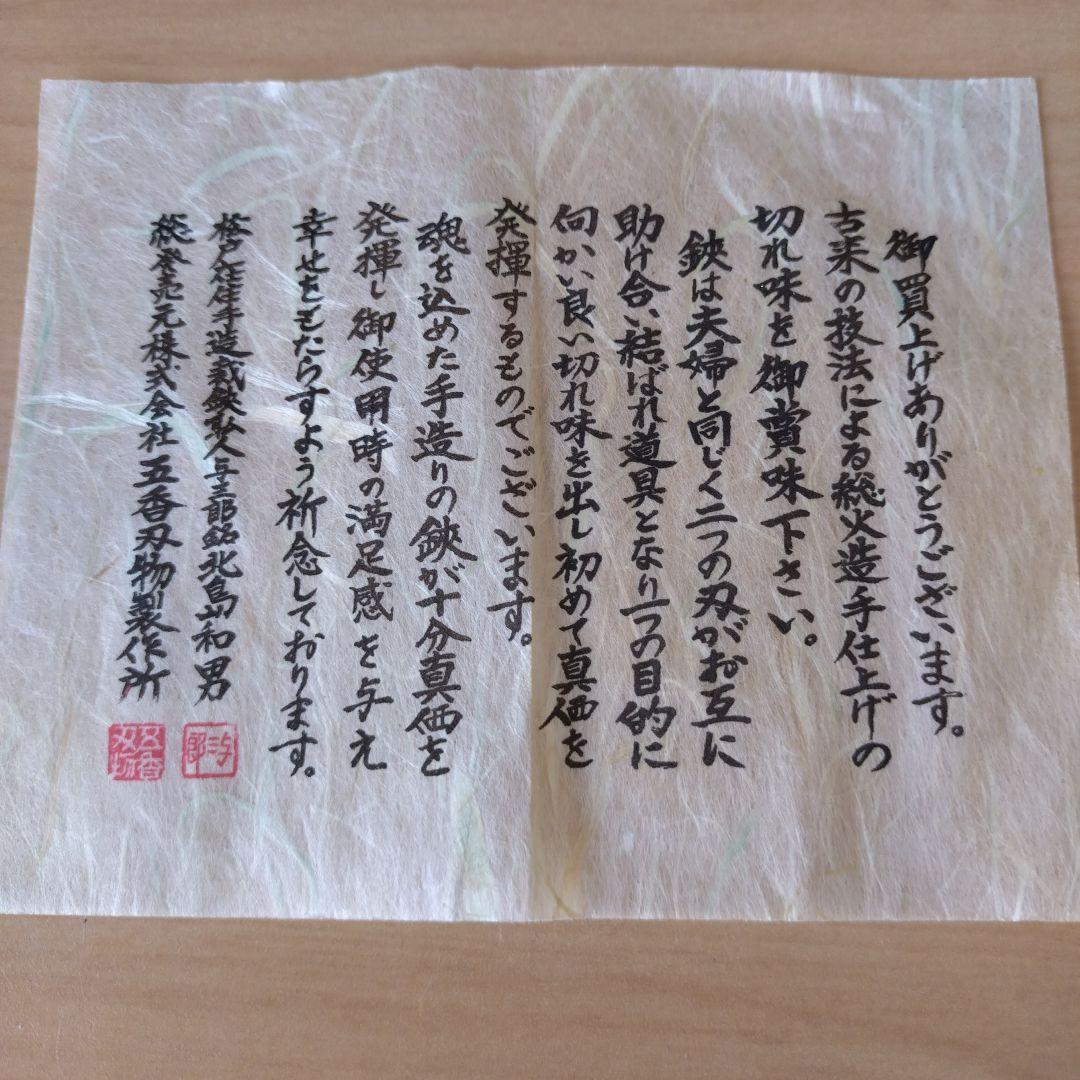 御買上げありがとうございます。
古来の技法による総火造手仕上げの
切れ味を御賞味下さい。
鋏は夫婦と同じく二つの刃がお互に
助け合い結ばれ道具となり一つの目的に
向かい良い切れ味を出し初めて真価を
発揮するものでございます。
魂を込めた手造りの鋏が十分真価を
発揮し御使用時の満足感を与え
幸せをもたらすよう祈念しております。
松戸在住手造裁鋏 与三郎銘北島和男
総発売元株式会社五香刃物製作所
五香刃物